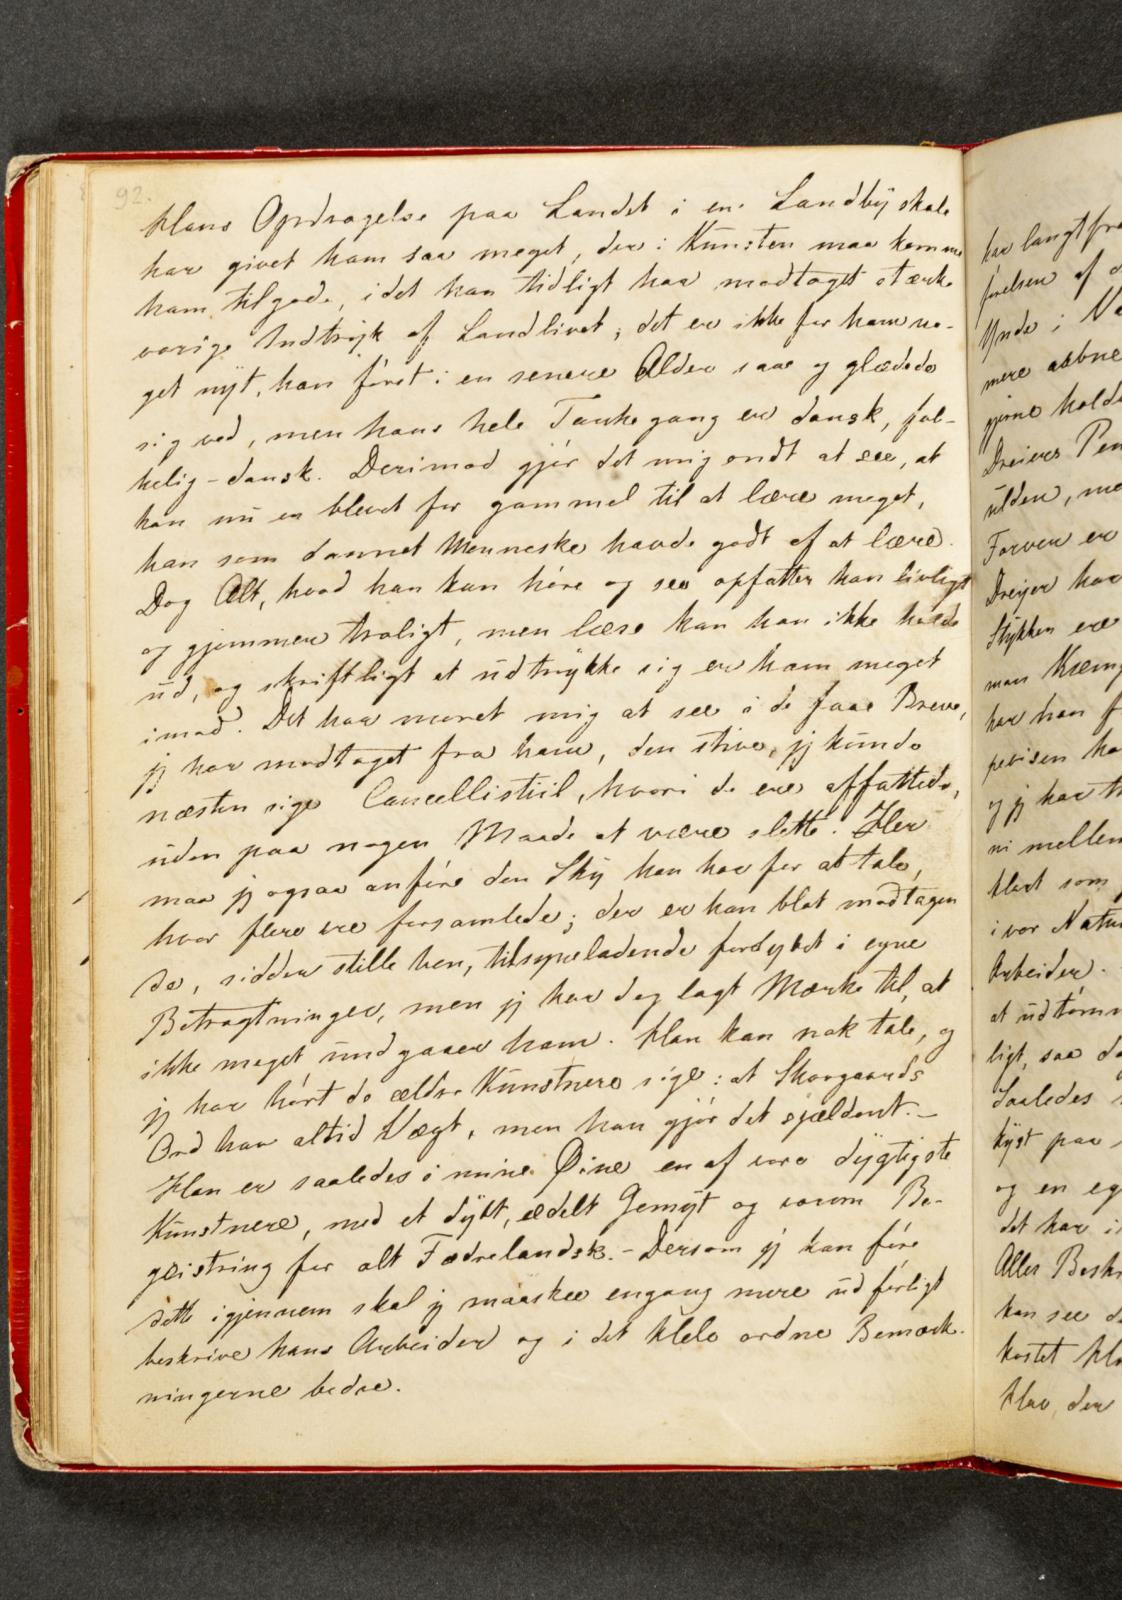 92.
Hans Opdragelse paa Landet i en Landbÿskole
har givet ham saa meget, der i Kunsten maa komme
ham tilgode, idet han tidligt har modtaget stærke
varige Indtrÿk af Landlivet; det er ikke for ham no-
get nÿt, han först i en senere Alder saae og glædede
sig ved, men hans hele Tankegang er dansk, fol-
kelig-dansk. Derimod gjör det mig ondt at see, at
han nu er blevet for gammel til at lære meget,
han som dannet Menneske havde godt af at lære.
Dog Alt, hvad han kan höre og see opfatter han livligt
og gjemmer troligt, men læse kan han ikke holde
ud, og skriftligt at udtrÿkke sig er ham meget
imod. Det har moret mig at see i de faae Breve,
jeg har modtaget fra ham, den stive, jeg kunde
næsten sige Cancellistiil, hvori de ere affattede,
uden paa nogen Maade at være slette. Her
maa jeg ogsaa anföre den Skÿ han har for at tale,
hvor flere ere forsamlede; der er han blot modtagen
de, sidder stille hen, tilsyneladende fordybet i egne
Betragtninger, men jeg har dog lagt Mærke til, at
ikke meget undgaaer ham. Han kan nok tale, og
jeg har hört de ældre Kunstnere sige: at Skovgaards
Ord har altid Vægt, men han gjör det sjældent. –
Han er saaledes i mine Öine en af vore dÿgtigste
Kunstnere, med et dÿbt, ædelt Gemÿt og varm Be-
geistring for alt Fædrelandsk. – Dersom jeg kan före
dette igjennem skal jeg maaskee engang mere udförligt
beskrive hans Arbeider og i det Hele ordne Bemærk-
ningerne bedre.
har langtfra
förelsen af
Ynde i
mere aabne
gjerne holde
Dreiers
Farven er
Dreyer har
Stÿkker ere
man
har han
og jeg har
ni mellem
klart som
i vor Natur
Arbeider.
at udtömm
ligt, saa
Saaledes
kÿst paa
og en eg
det har i
Alles
kan see
kostet
Hav, der